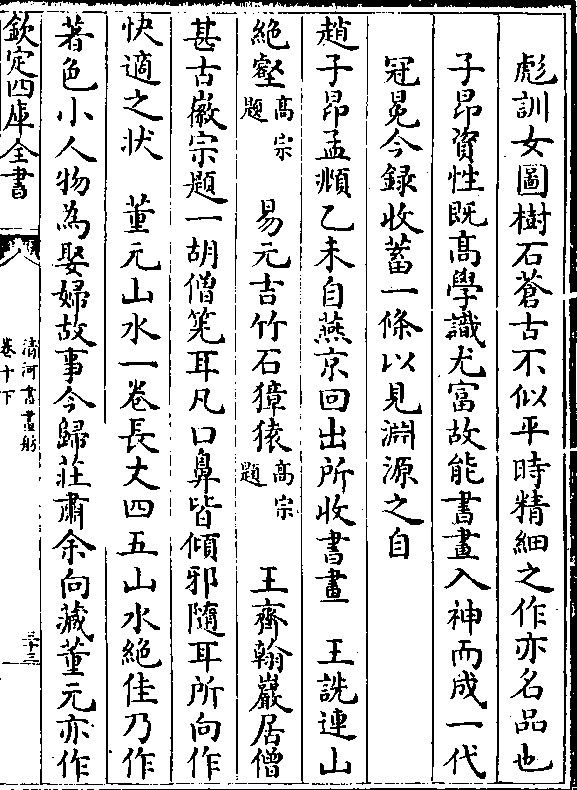 彪訓女圖樹石蒼古不似平時精細之作亦名品也
子昂資性既髙學識尤富故能書畫入神而成一代
冠冕今録收蓄一條以見淵源之自
趙子昂孟頫乙未自燕京回出所收書畫　王詵連山
絶壑髙宗題　易元吉竹石獐猿髙宗題　王齊翰巖居僧
甚古徽宗題一胡僧筅耳凡口鼻皆傾邪隨耳所向作
快適之状　董元山水一巻長丈四五山水絶佳乃作
著色小人物為娶婦故事今歸莊肅余向藏董元亦作
欽定四庫全書
清河書畫舫
卷十下
三十三